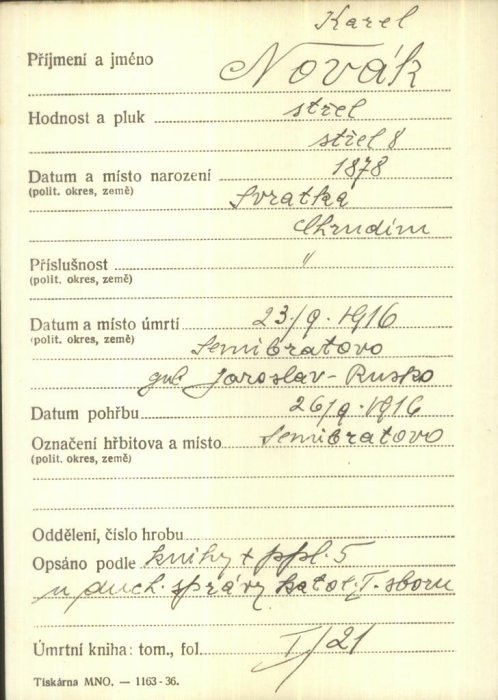 Karel
Příjmení a jméno Novák
Hodnost a pluk střel
střel 8
Datum a místo narození 1878
(polit. okres, země) Svratka
Chrudim
Příslušnost "
(polit. okres, země)
Datum a místo úmrtí 23/9. 1916
(polit. okres, země) Semibratovo
gub Jaroslav - Rusko
Datum pohřbu 26/9. 1916
Označení hřbitova a místo Semibratovo
(polit. okres, země)
Oddělení, číslo hrobu
Opsáno podle knihy + ppl. 5
u duch. správy katol. I. sboru
Úmrtní kniha: tom., fol. I/21
Tiskárna MNO. — 1163-36.